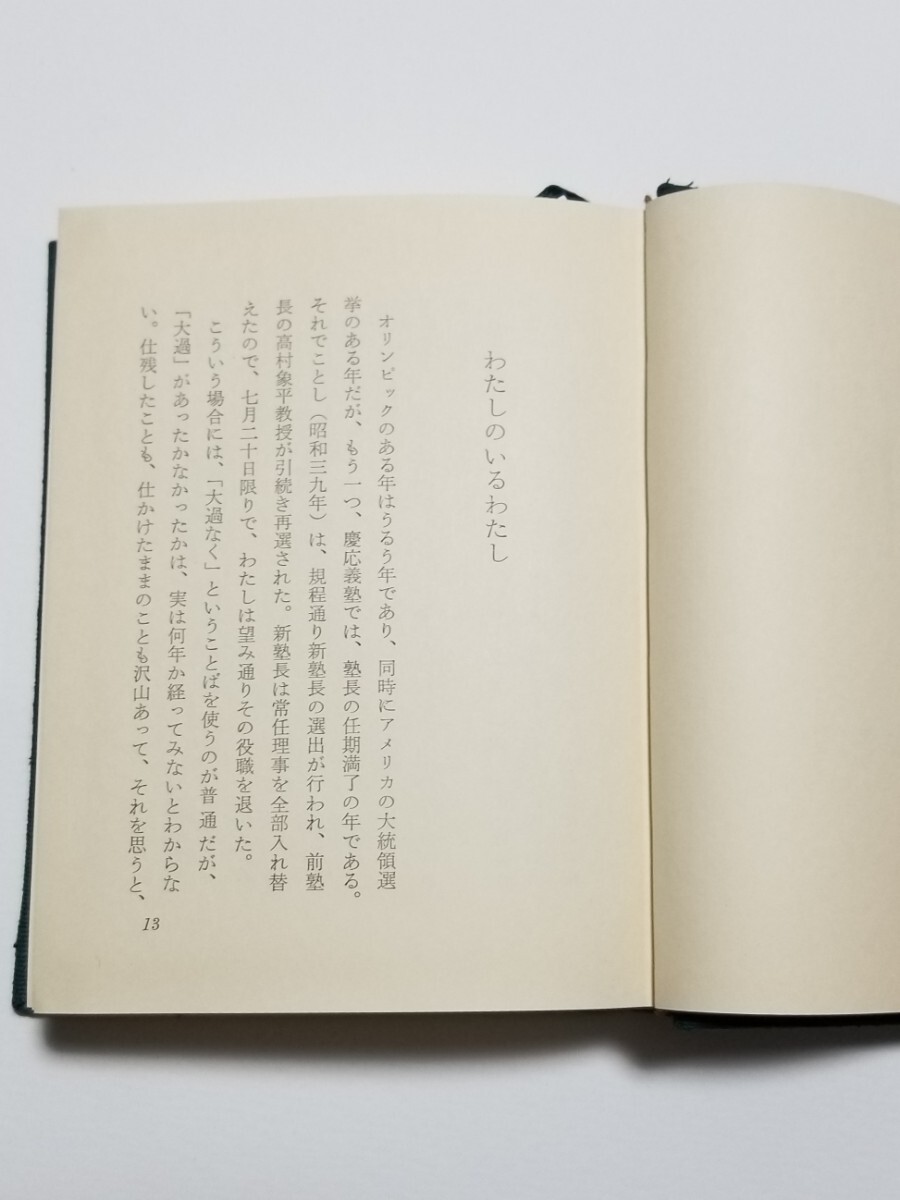 わたしのいるわたし
オリンピックのある年はうるう年であり、同時にアメリカの大統領選
挙のある年だが、もう一つ、慶応義塾では、塾長の任期満了の年である。
それでことし（昭和三九年）は、規程通り新塾長の選出が行われ、前塾
長の高村象平教授が引続き再選された。新塾長は常任理事を全部入れ替
えたので、七月二十日限りで、わたしは望み通りその役職を退いた。
こういう場合には、「大過なく」ということばを使うのが普通だが、
「大過」があったかなかったかは、実は何年か経ってみないとわからな
い。仕残したことも、仕かけたままのことも沢山あって、それを思うと、
13